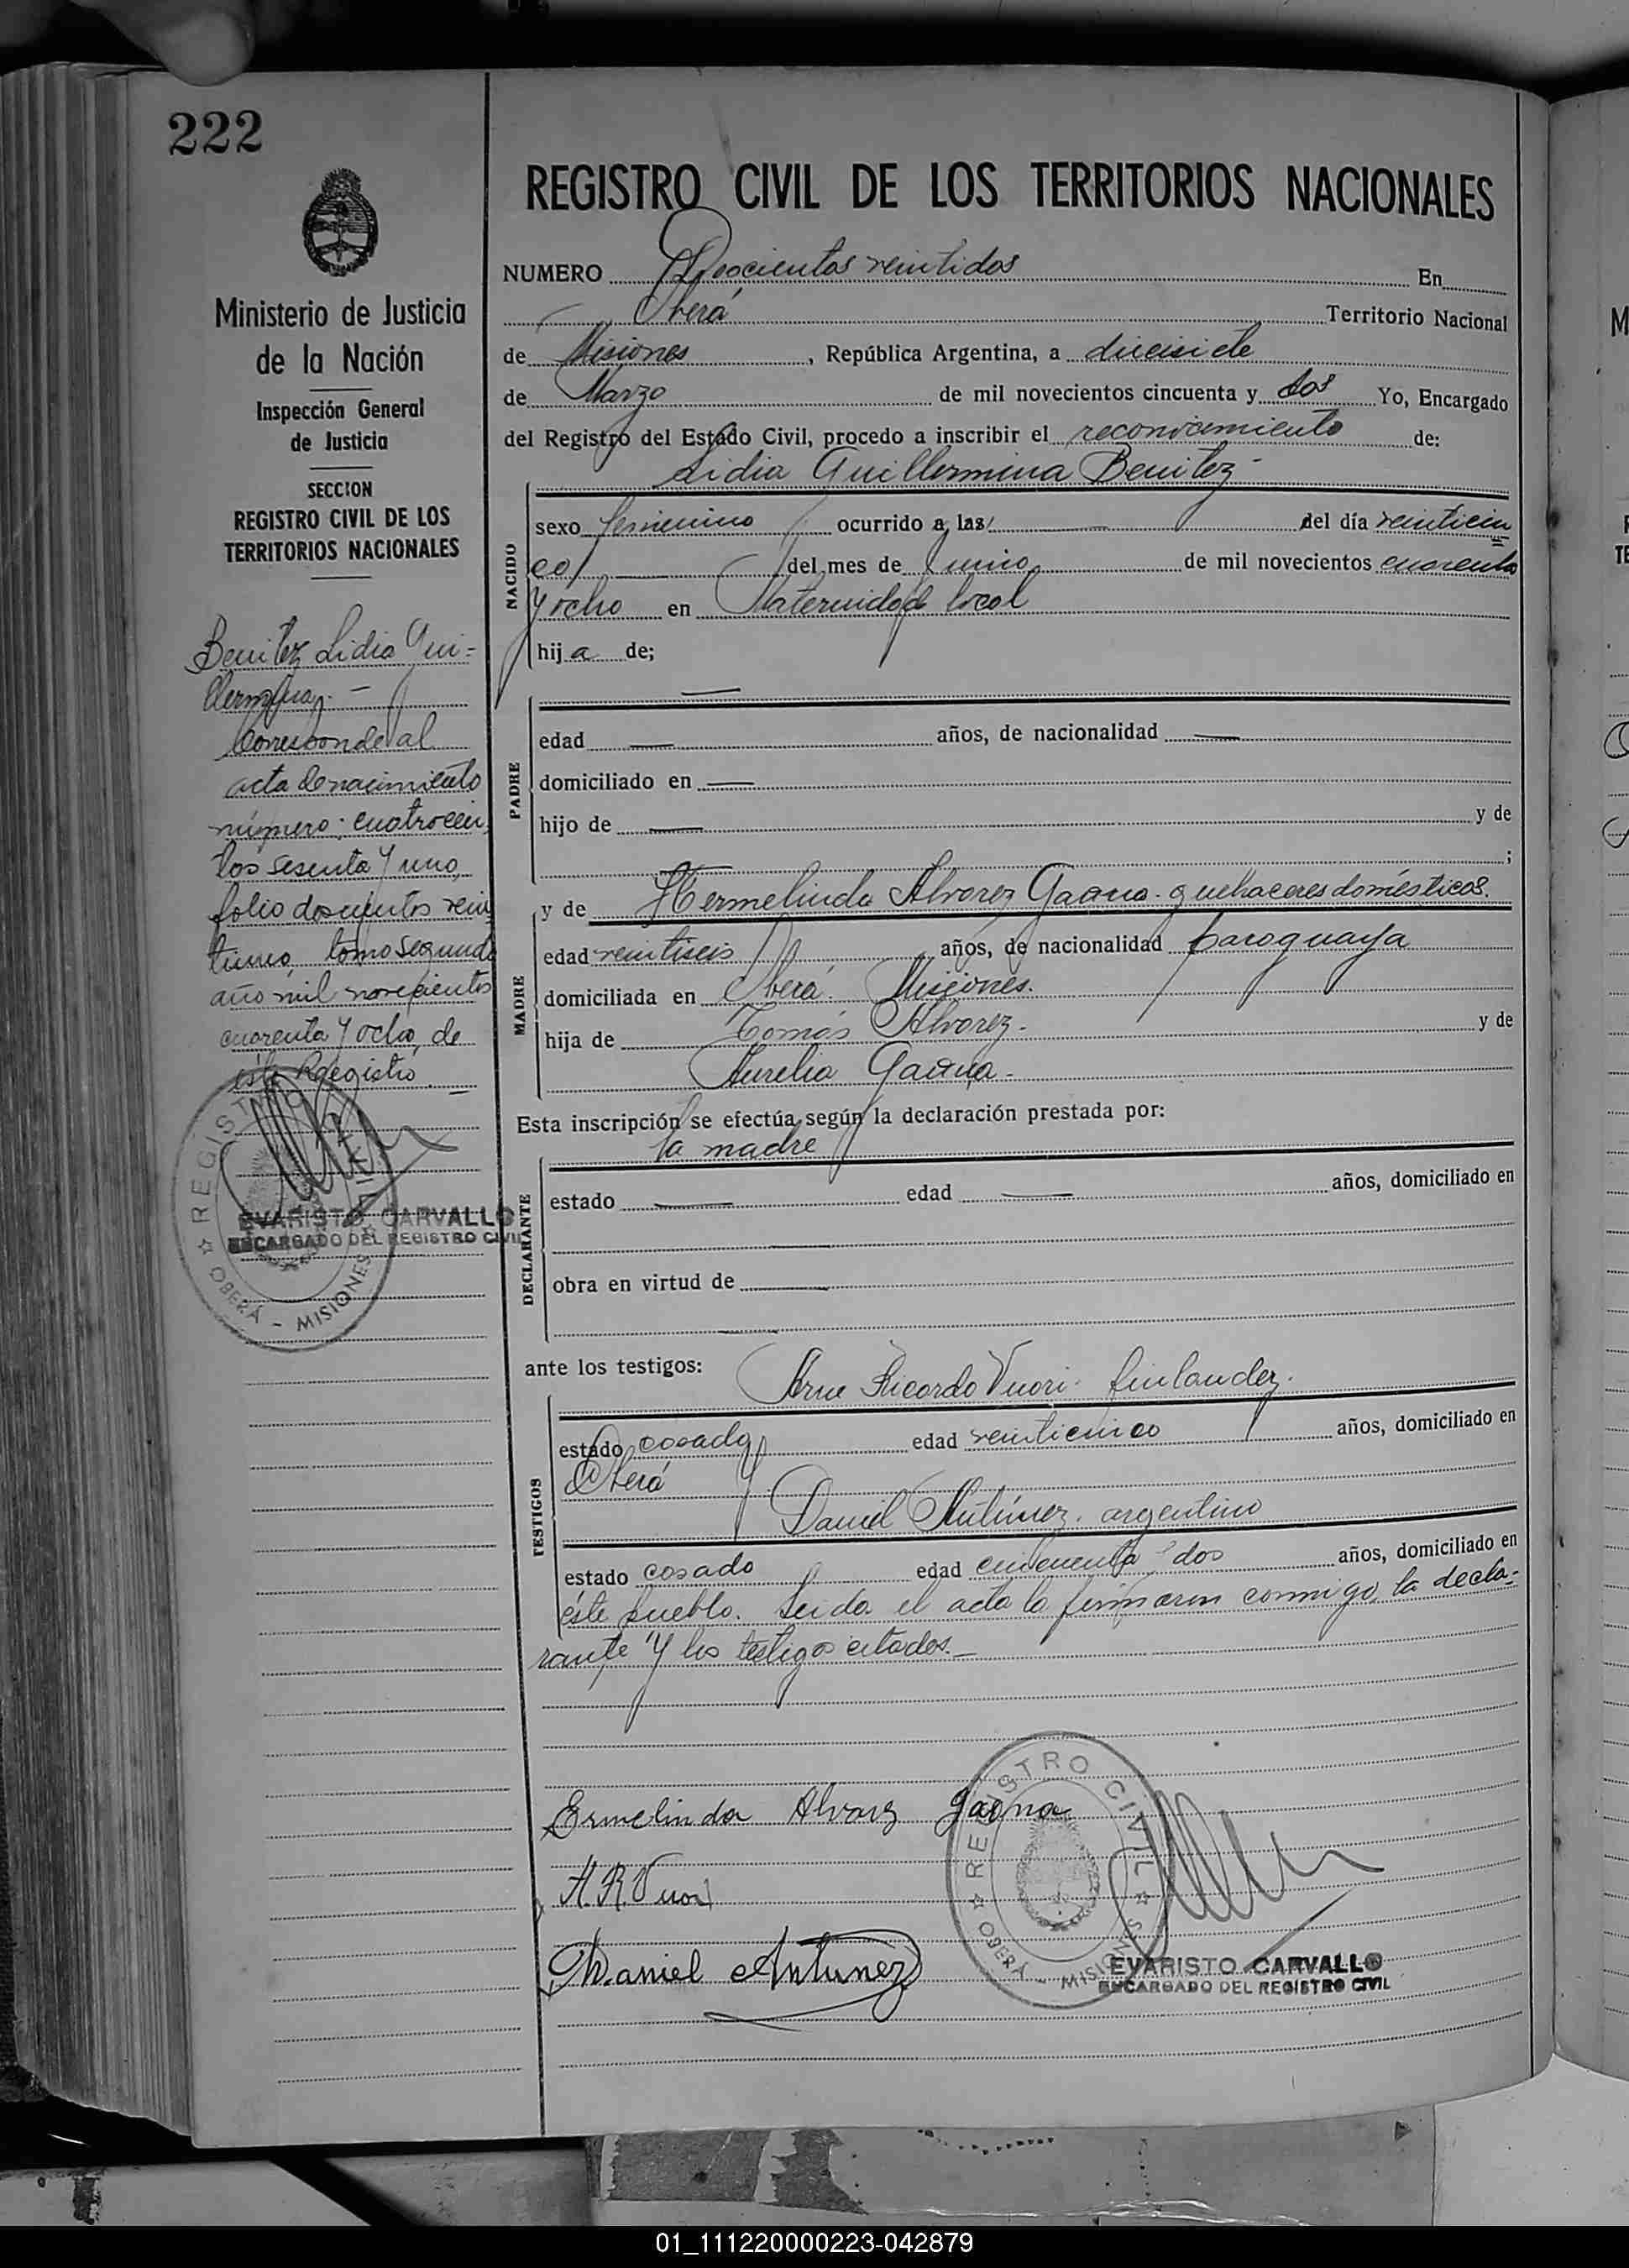 222
REGISTRO CIVIL DE LOS TERRITORIOS NACIONALES
Ministerio de Justicia
de la Nación
Inspección General
de Justicia
SECCION
REGISTRO CIVIL DE LOS
TERRITORIOS NACIONALES
Benitez Lidia Gui=
llermina. —
Corresponde al
acta de nacimiento
número: cuatrocien
tos sesenta y uno,
folio doscientos vein
tiuno, tomo segundo
año mil novecientos
cuarenta y ocho, de
éste Registro. —
REGISTRO CIVIL
OBERÁ - MISIONES
EVARISTO CARVALLO
ENCARGADO DEL REGISTRO CIVIL
NUMERO Doscientos veintidos En
Oberá Territorio Nacional
de Misiones, República Argentina, a diecisiete
de Marzo de mil novecientos cincuenta y dos Yo, Encargado
del Registro del Estado Civil, procedo a inscribir el reconocimiento de:
Lidia Guillermina Benitez-
NACIDO
sexo femenino ocurrido a las — del día veinticin
co — del mes de Junio de mil novecientos cuarenta
y ocho en Maternidad local
hija de;
—
PADRE
edad — años, de nacionalidad —
domiciliado en —
hijo de — y de
— ;
MADRE
y de Hermelinda Alvarez Gaona- quehaceres domésticos.
edad veintiseis años, de nacionalidad paraguaya
domiciliada en Oberá. Misiones.
hija de Tomás Alvarez- y de
Aurelia Gaona-
Esta inscripción se efectúa según la declaración prestada por:
la madre
DECLARANTE
estado — edad — años, domiciliado en
—
obra en virtud de —
—
ante los testigos: Arne Ricardo Vuori- finlandez.
TESTIGOS
estado casado edad veinticinco años, domiciliado en
Oberá y
Daniel Antúnez. argentino
estado casado edad cincuenta dos años, domiciliado en
éste pueblo. Leida el acta la firmaron conmigo, la decla=
rante y los testigos citados.—
Ermelinda Alvarez Gaona
A.R.Vuori
Daniel Antunez
REGISTRO CIVIL
OBERÁ - MISIONES
EVARISTO CARVALLO
ENCARGADO DEL REGISTRO CIVIL
01_111220000223-042879